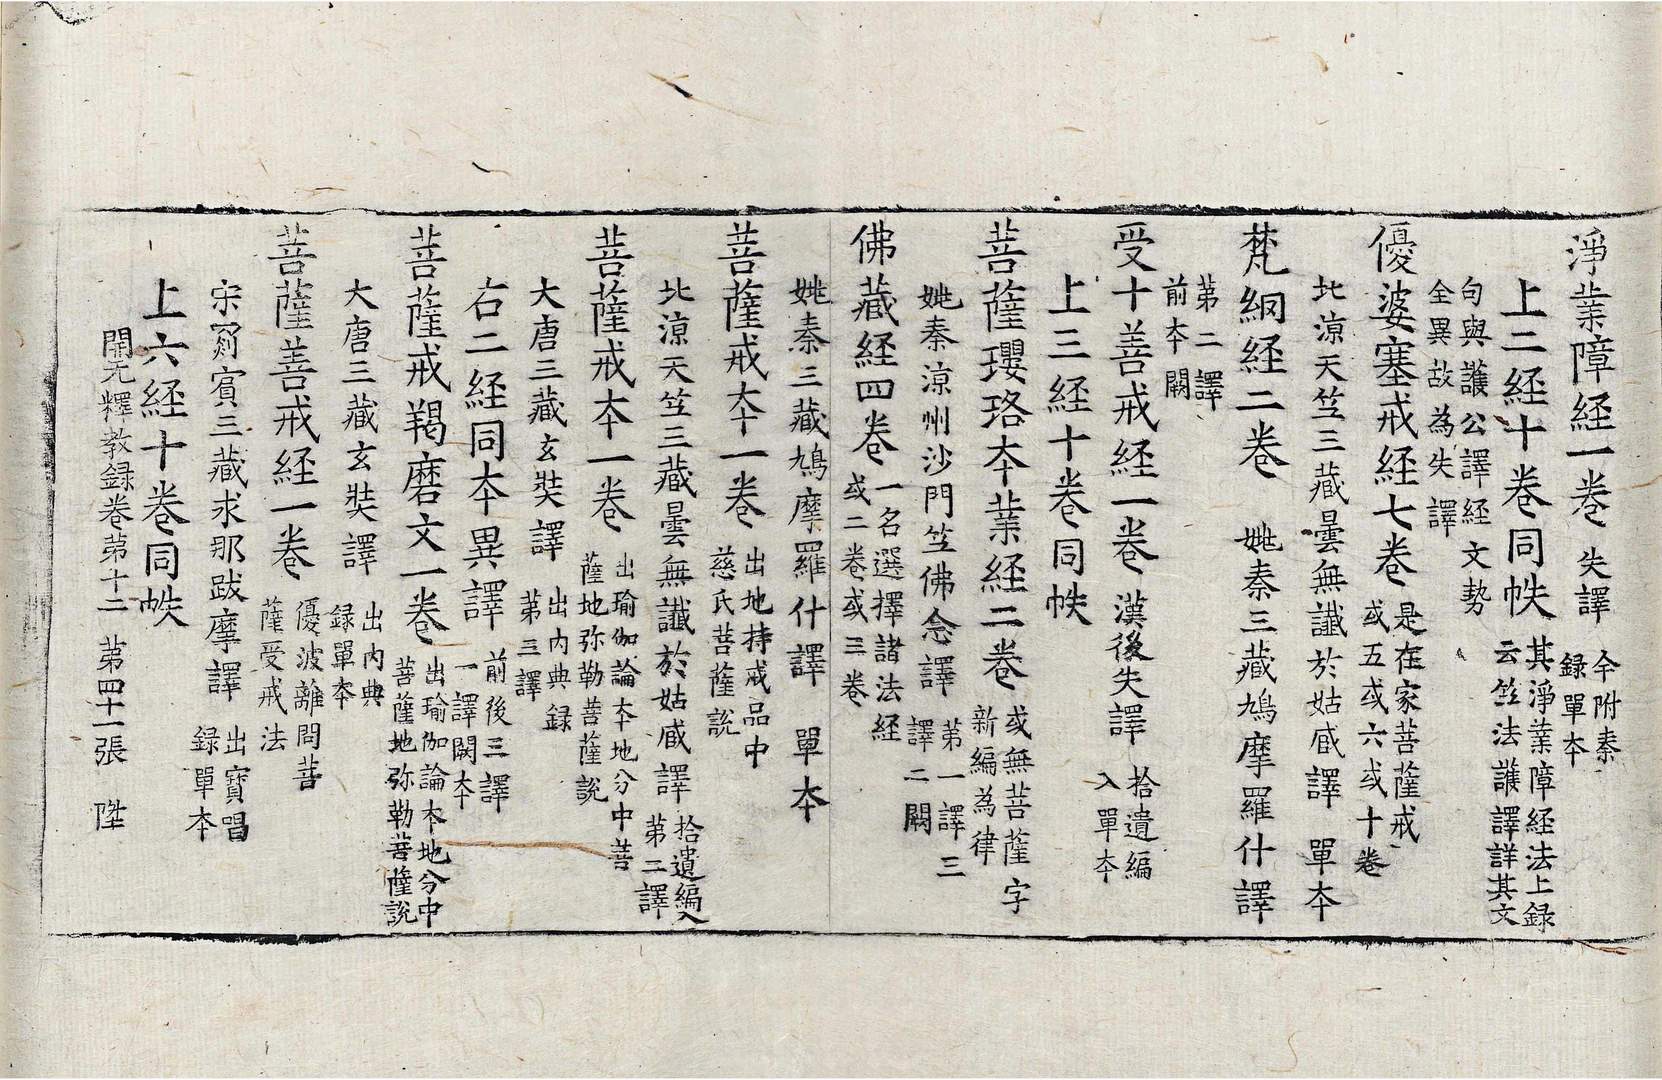 淨業障経一卷 失譯 今附秦録單本
上二経十卷同帙 其淨業障経法上録云竺法護譯詳其文
句與護公譯経文勢全異故為失譯
優婆塞戒経七卷 是在家菩薩戒或五或六或十卷
北涼天竺三藏曇無讖於姑臧譯 單本
梵網経二卷 姚秦三藏鳩摩羅什譯
第二譯前本闕
受十善戒経一卷 漢後失譯 拾遺編入單本
上三経十卷同帙
菩薩瓔珞本業経二卷 或無菩薩字新編為律
姚秦涼州沙門竺佛念譯 第一譯三譯二闕
佛藏経四卷 一名選擇諸法経或二卷或三卷
姚秦三藏鳩摩羅什譯 單本
菩薩戒本一卷 出地持戒品中慈氏菩薩説
北涼天竺三藏曇無讖於姑臧譯 拾遺編入第二譯
菩薩戒本一卷 出瑜伽論本地分中菩薩地弥勒菩薩説
大唐三藏玄奘譯 出内典録第三譯
右二経同本異譯 前後三譯一譯闕本
菩薩戒羯磨文一卷 出瑜伽論本地分中菩薩地弥勒菩薩説
大唐三藏玄奘譯 出内典録單本
菩薩善戒経一卷 優波離問菩薩受戒法
宋罽賓三藏求那跋摩譯 出寶唱録單本
上六経十卷同帙
開元釋教録卷第十二 第四十一張 陞